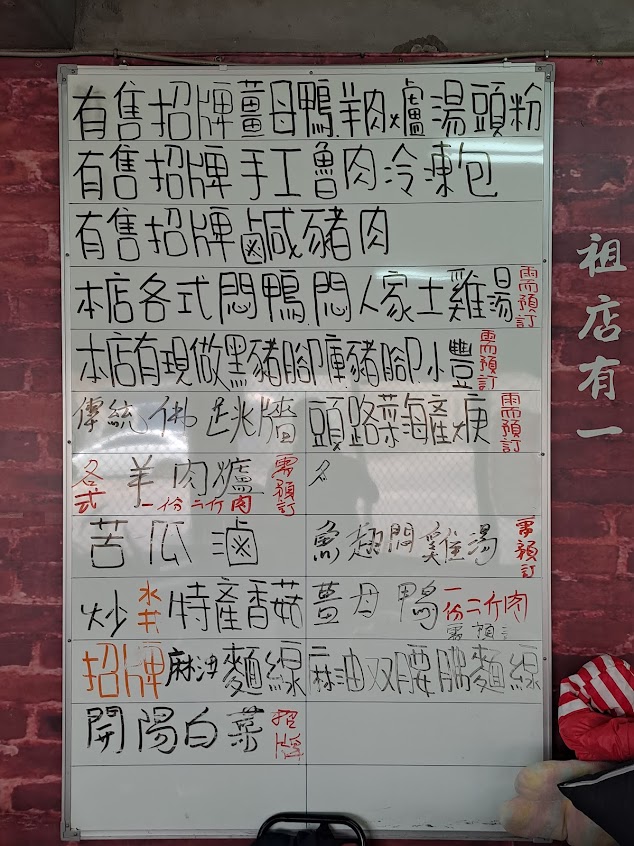 有售招牌薑母鴨.羊肉爐湯頭粉
有售招牌手工魯肉冷凍包
有售招牌鹵鹹豬肉
本店各式悶鴨.悶人家土雞湯 需預訂
本店有現做黑豬腳庫豬腳小豐 需預訂
傳統佛跳牆
頭路菜海產焿 需預訂
各式羊肉爐 一份二斤肉 需預訂
名
苦瓜鹵
魚翅悶雞湯 需預訂
炒水井特產香菇
薑母鴨 一份二斤肉 需預訂
招牌麻油麵線
麻油双腰腳麵線
開陽白菜 招牌
祖店有一